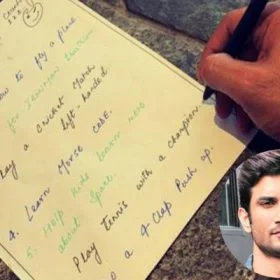 how to fly a plane
for
Play a cricket match
left-handed
4. Learn Morse code.
5. Help kids learn
about Space.
Play tennis with a champion
a 4-Clap Push up.